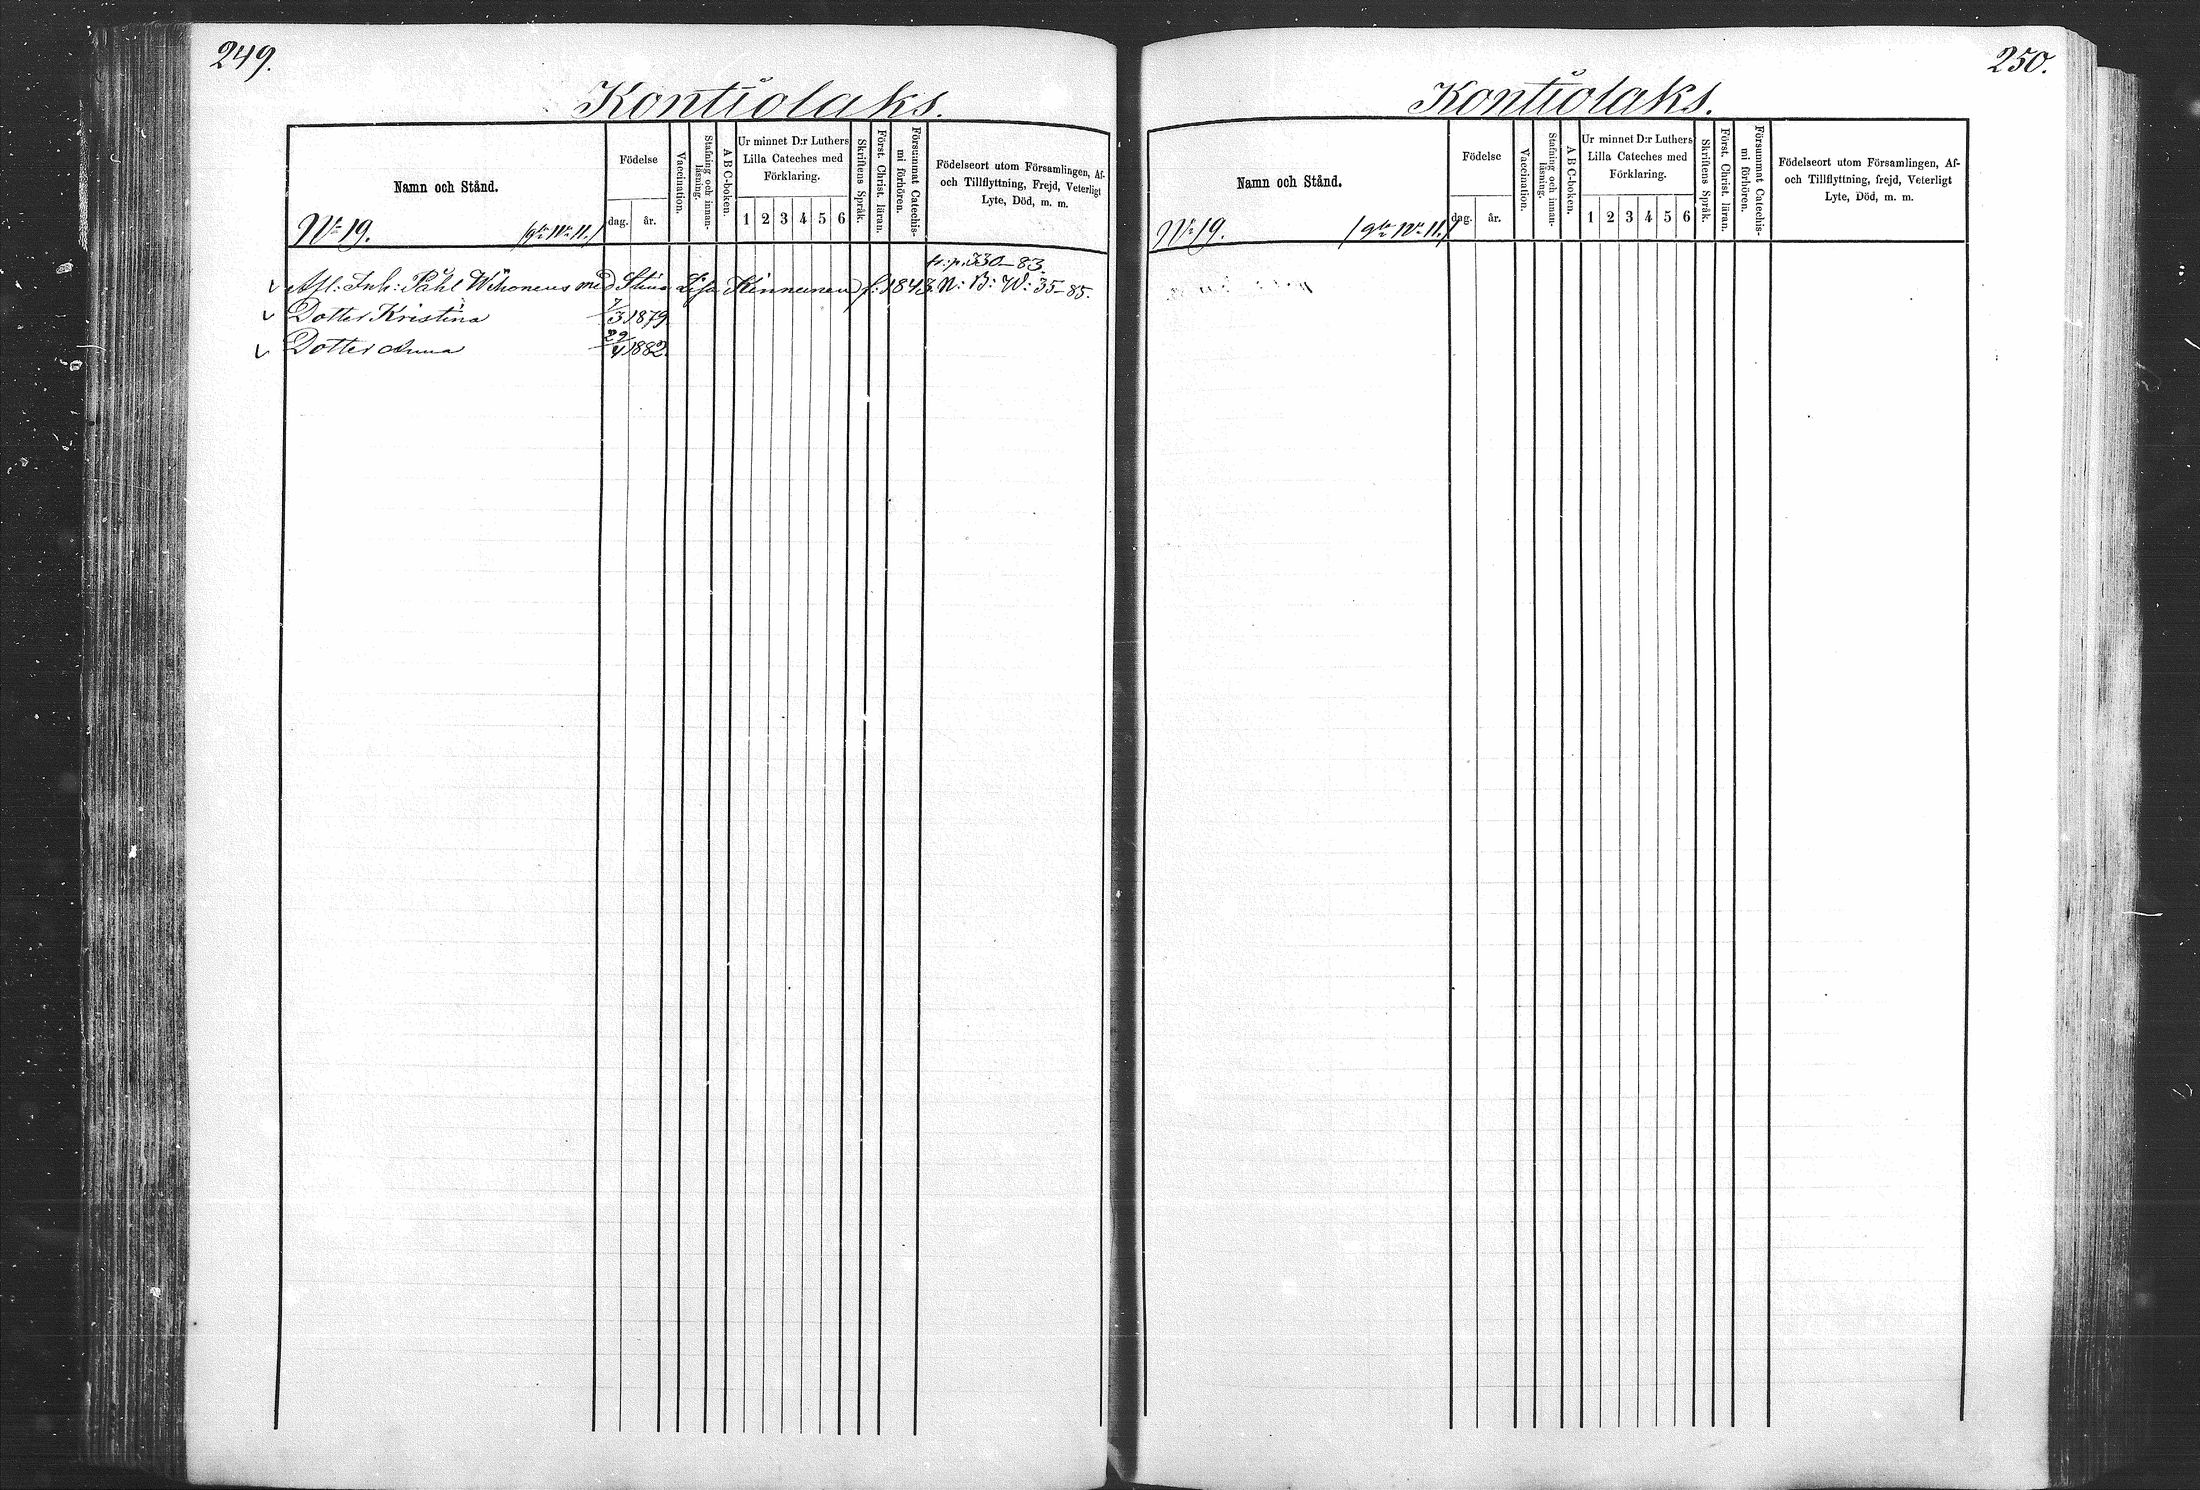 249.
Kontiolaks.
Namn och Stånd.
Födelse
dag. år.
Vaccination.
Stafning och innan-läsning.
A B C-boken.
Ur minnet D:r Luthers
Lilla Cateches med
Förklaring.
1 2 3 4 5 6
Skriftens Språk.
Först. Christ. läran.
Försummat Catechis-
mi förhören.
Födelseort utom Församlingen, Af-
och Tillflyttning, Frejd, Veterligt
Lyte, Död, m. m.
No 19. (gla No 11.)
fr: p. 330-83.
Afl: Inh: Påhl Wihonens med Stina Lisa Kinnunen f: 1843. N: B: W: 35-85.
Dotter Kristina 7/3 1879.
Dotter Anna 29/4 1882.
250.
Kontiolaks.
Namn och Stånd.
Födelse
dag. år.
Vaccination.
Stafning och innan-läsning.
A B C-boken.
Ur minnet D:r Luthers
Lilla Cateches med
Förklaring.
1 2 3 4 5 6
Skriftens Språk.
Först. Christ. läran.
Försummat Catechis-
mi förhören.
Födelseort utom Församlingen, Af-
och Tillflyttning, frejd, Veterligt
Lyte, Död, m. m.
No 19. (gla No 11.)